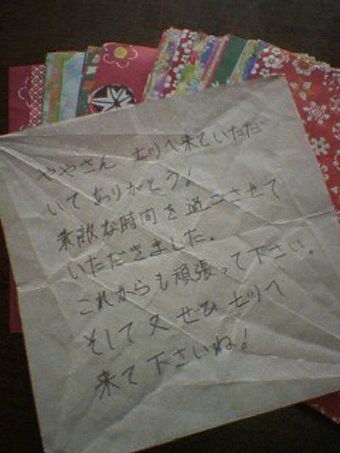 ややさん 七リへ来ていただ
いてありがとう!
素敵な時間を過ごさせて
いただきました。
これからも頑張って下さい。
そして又 ぜひ 七リへ
来て下さいね!